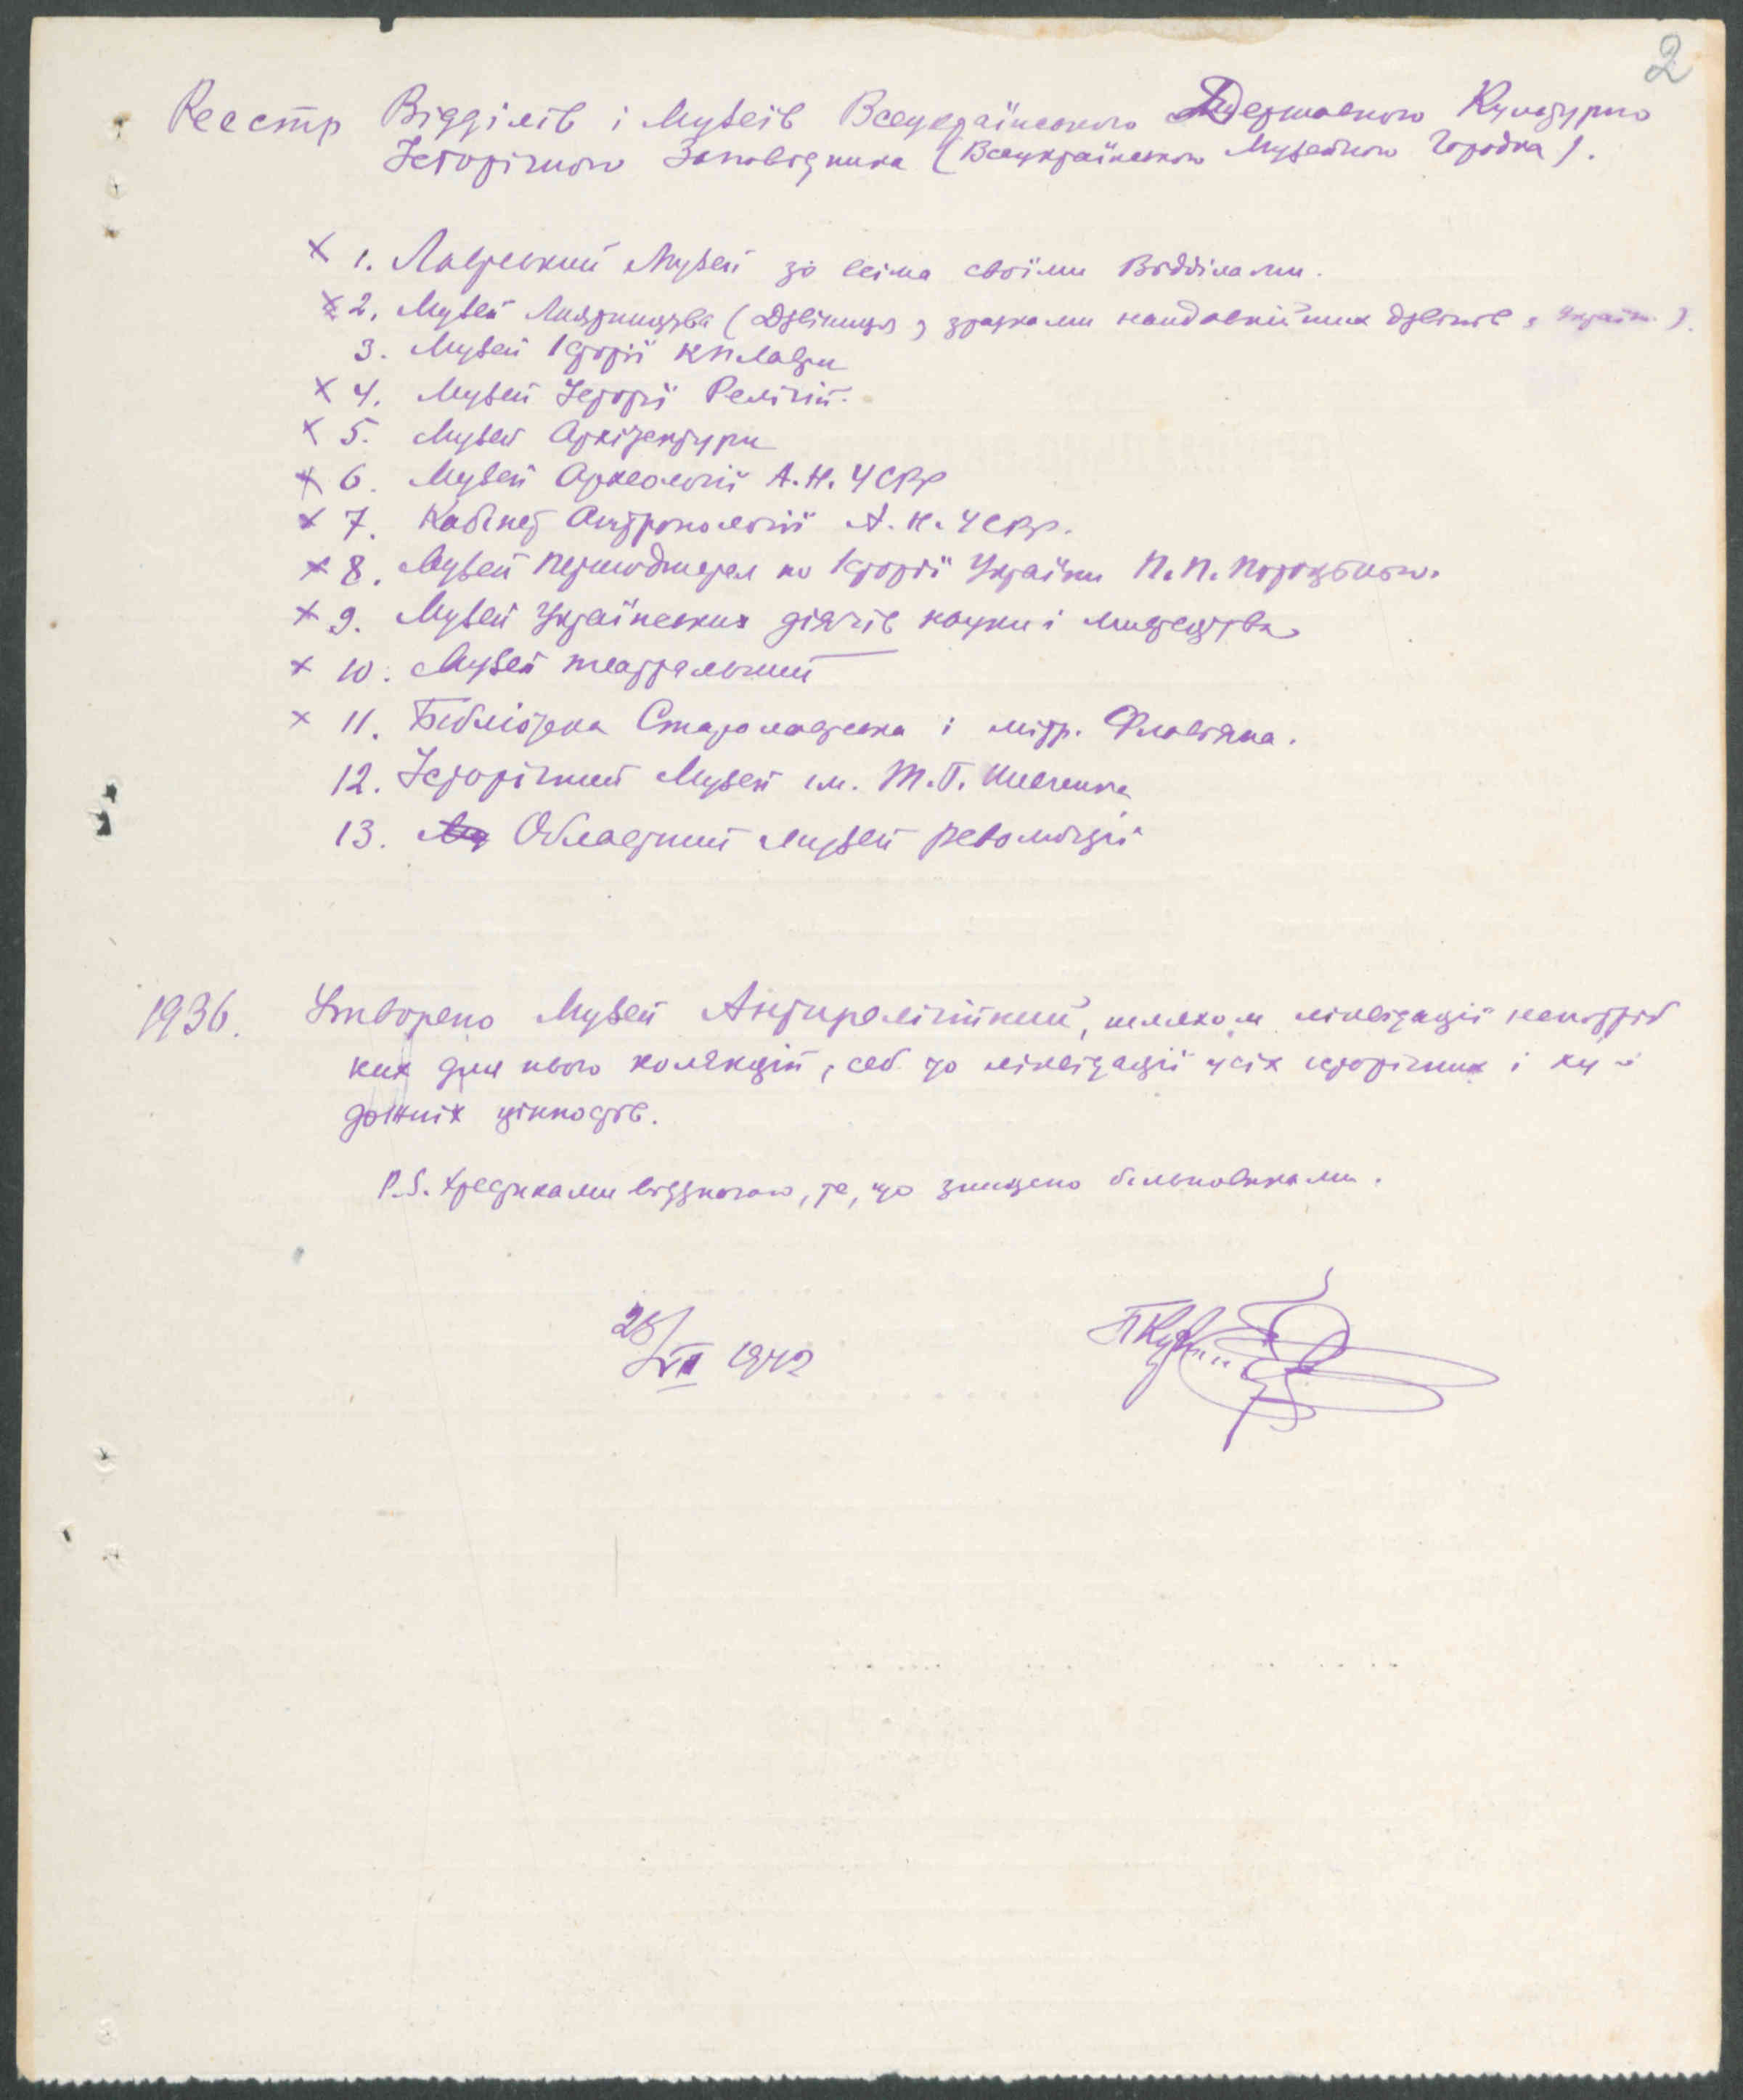 2
Реєстр Відділів і Музеїв Всеукраїнського Державного Культурно
Історічного Заповідника (Всеукраїнського Музейного Городка).
× 1. Лаврський Музей зо всіма своїми Відділами.
× 2. Музей Людвицтва (Дзвіниця з зразками найдавнійших дзвінів з Україн.).
3. Музей Історії КПЛаври
× 4. Музей Історії Релігій.
× 5. Музей Архітектури
× 6. Музей Археології А.Н. УСРР
× 7. Кабінет Антропології А.Н. УСРР.
× 8. Музей першоджерел по Історії України П.П. Потоцького.
× 9. Музей Українських діячів науки і мистецтва
× 10. Музей театральний
× 11. Бібліотека Старолаврська і мітр. Флавіана.
12. Історічний Музей ім. Т.Г. Шевченка
13. Обласний музей революції
1936. Утворено Музей Антирелігійний, шляхом ліквідації непотріб
них для нього колякцій, себ то ліквідації усіх історічних і ху-
дожніх цінностів.
P.S. Хрестиками відзначаю, те, що знищено більшовиками.
28/VII 1942
ПКур